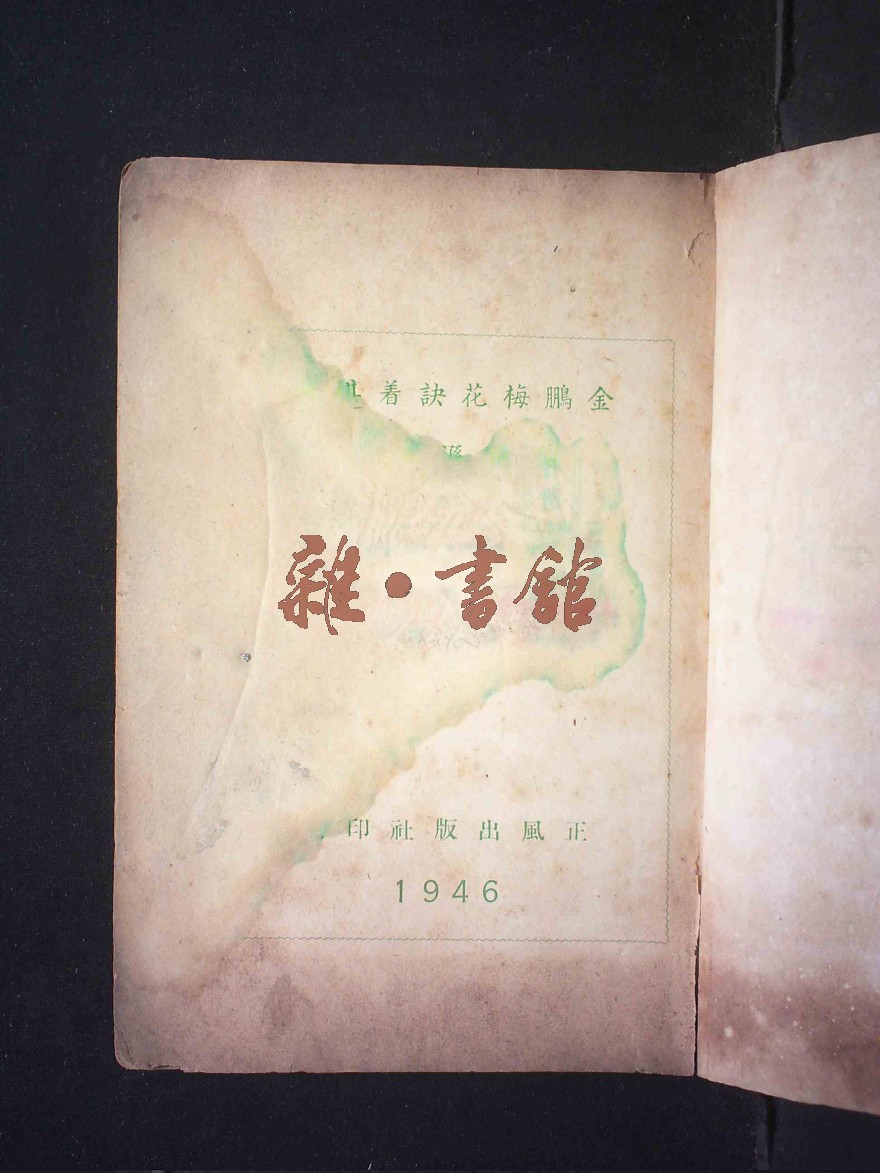 金鵬梅花訣着
雜●書館
正風出版社印
1946